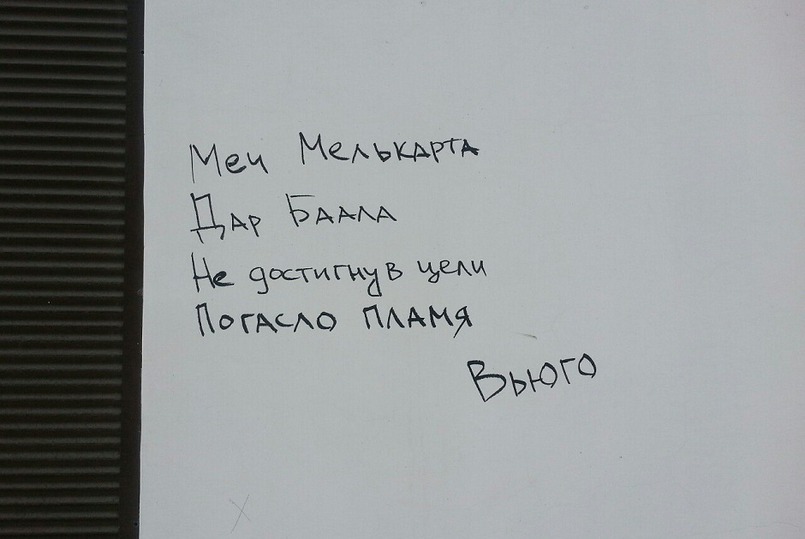 Меч Мелькарта
Дар Баала
Не достигнув цели
Погасло пламя
Вьюго